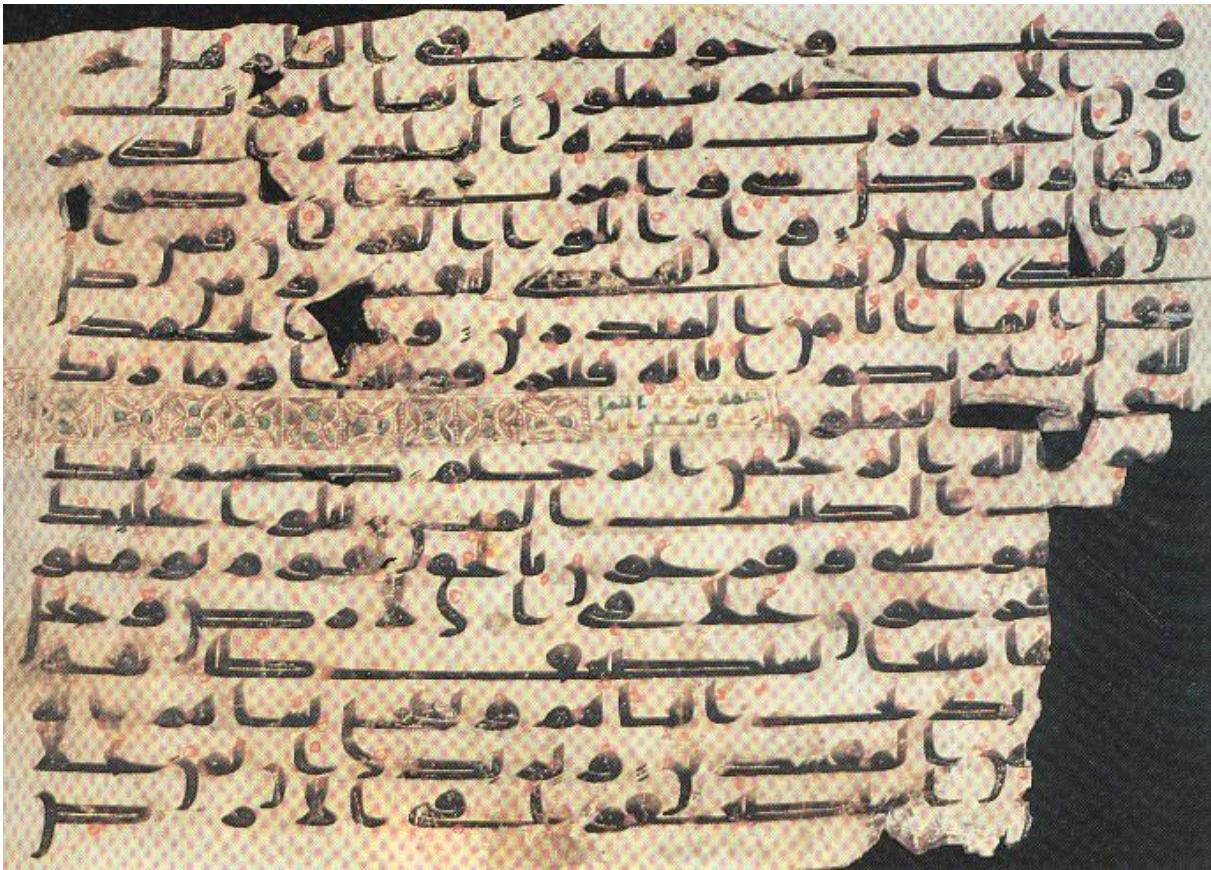 فكبت وجوههم في النار هل تجز
ون الا ما كنتم تعملون انما امرت
ان اعبد رب هذه البلدة الذي حر
مها وله كل شي وامرت ان اكون
من المسلمين وان اتلوا القران فمن ا
هتدى فانما يهتدي لنفسه ومن ضل
فقل انما انا من المنذرين وقل الحمد
لله سيريكم ايته فتعرفونها وما ربك
تعملون
الله الرحمن الرحيم طسم تلك
الكتب المبين نتلوا عليك
موسى وفرعون بالحق لقوم يومنو
فرعون علا في الارض وجعل
هلها شيعا يستضعف طائفة
يذبح ابناهم ويستحي نساهم انه
من المفسدين ونريد ان نمن على
استضعفوا في الارض